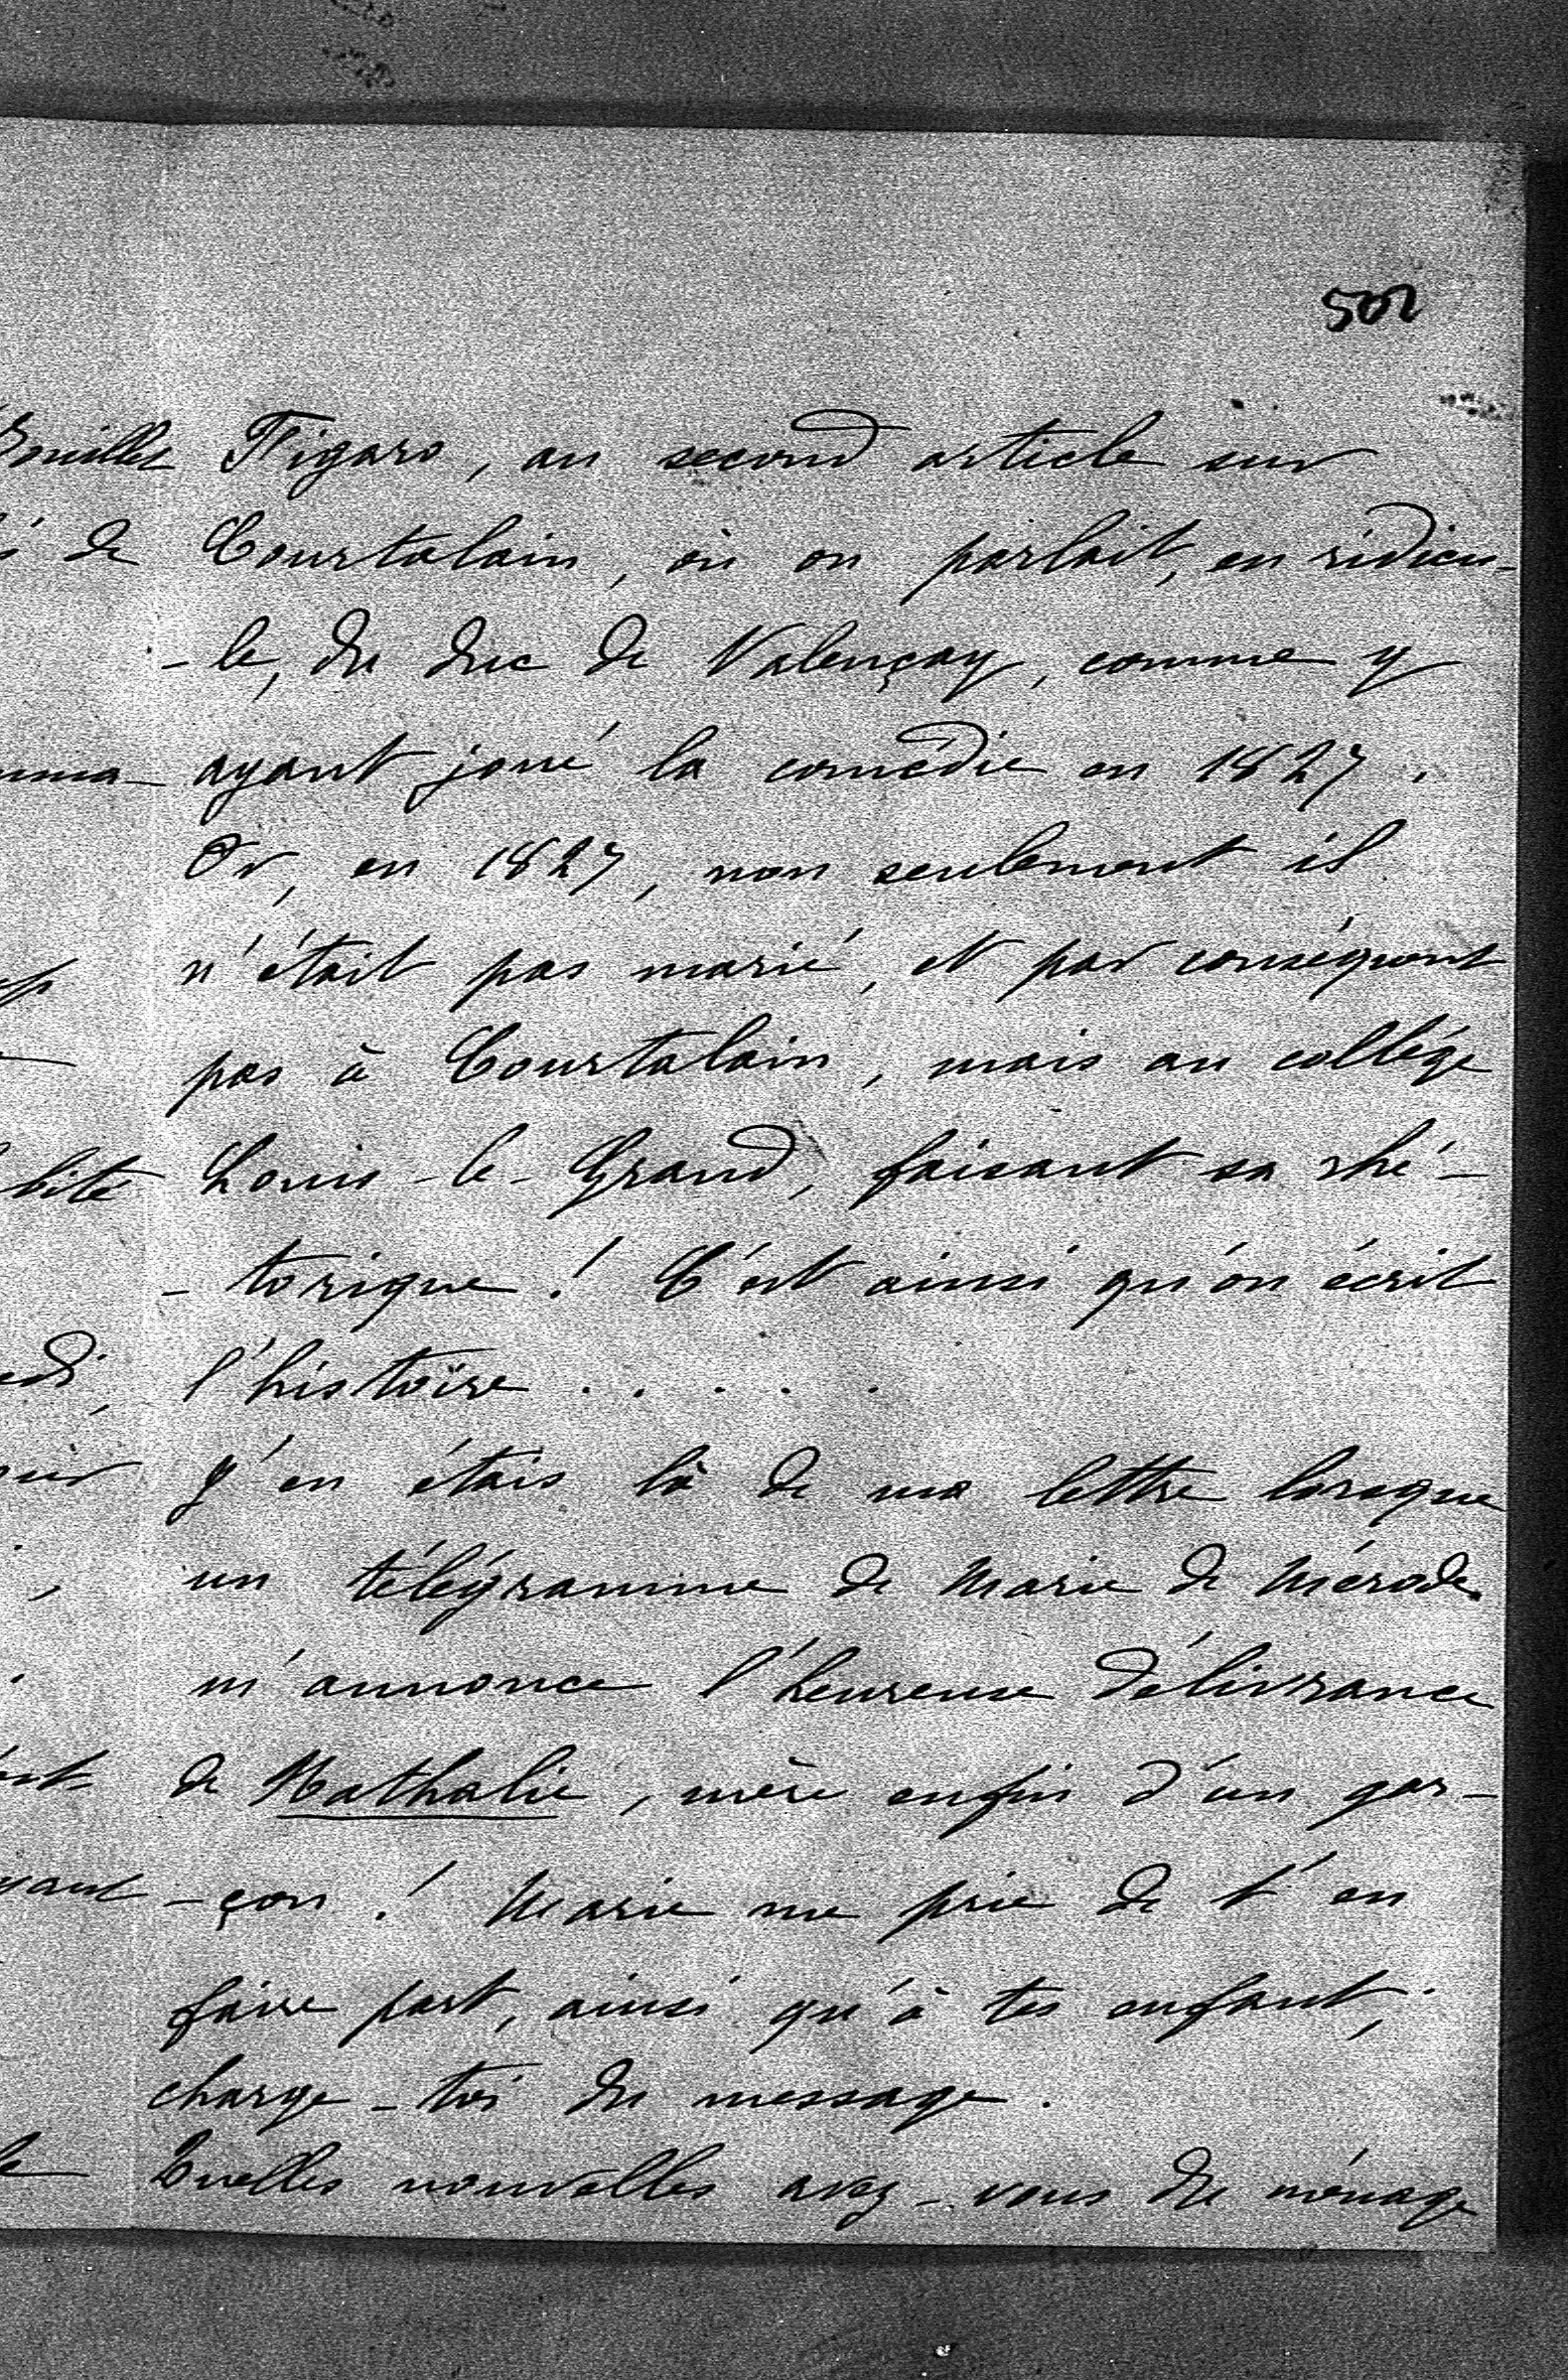 502
Figaro, un second article sur
Courtalain, où on parlait, en ridicu-
-le, du duc de Valençay, comme y
ayant joué la comédie en 1827.
Or, en 1827, non seulement il
n'était pas marié, et par conséquent
pas à Courtalain, mais au collége
Louis-le-Grand, faisant sa rhé-
-torique ! C'est ainsi qu'on écrit
l'histoire . . . . .
J'en étais là de ma lettre lorsque
un télégramme de Marie de Mérode
m'annonce l'heureuse délivrance
de Nathalie, mère enfin d'un gar-
-çon ! Marie me prie de t'en
faire part, ainsi qu'à tes enfants;
charge-toi du message.
Quelles nouvelles avez-vous du ménage